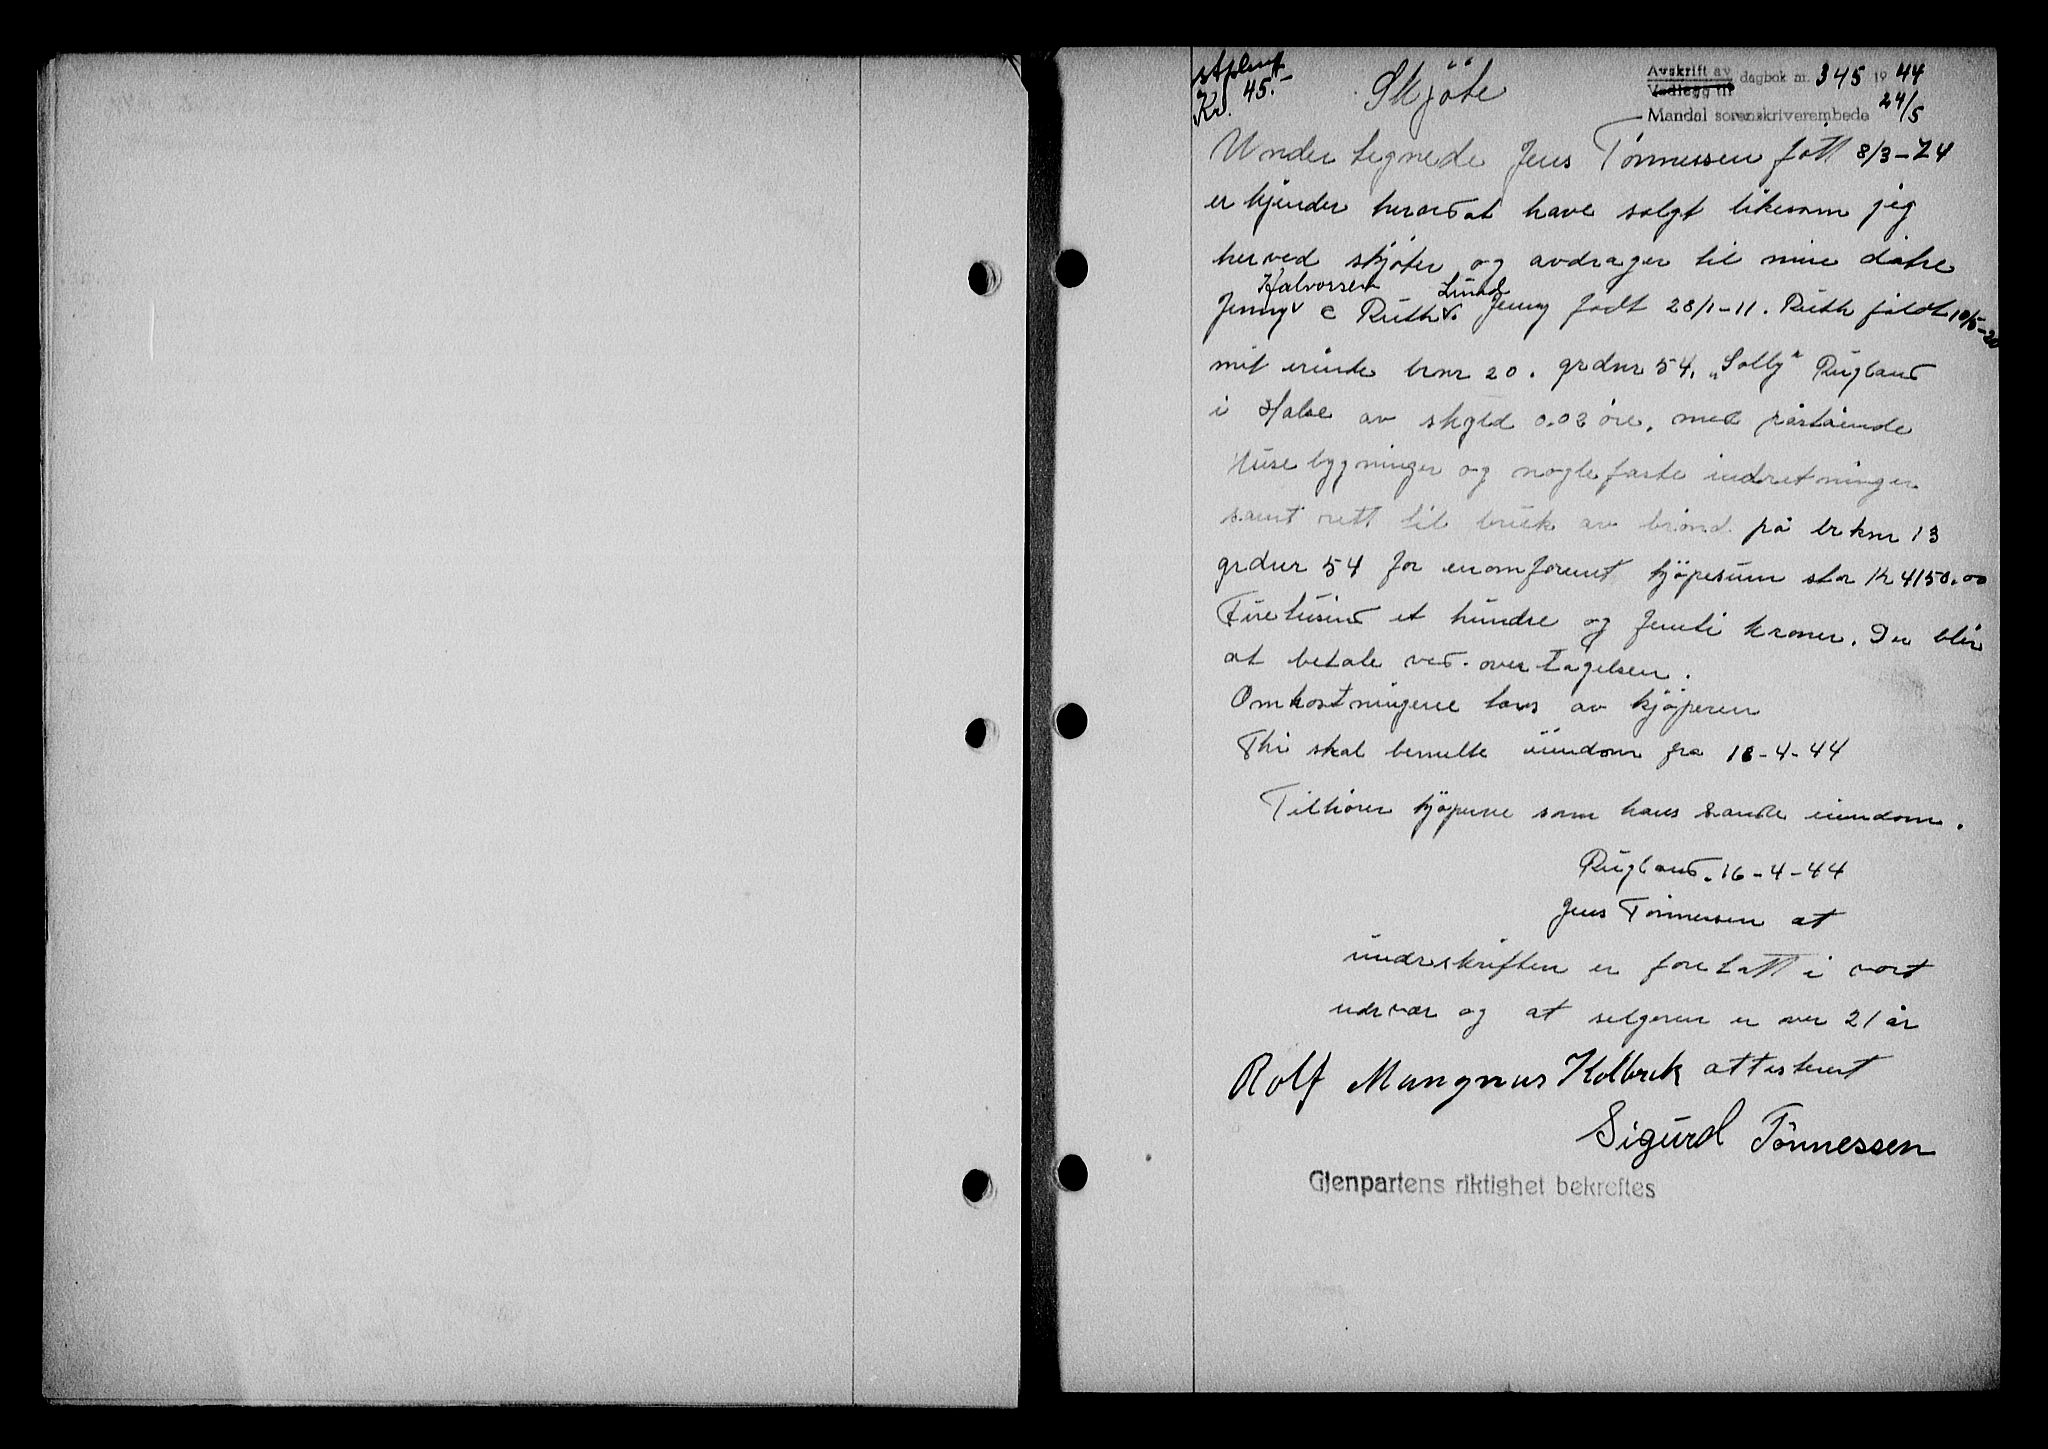 stplmf
Kr. 45.-
Skjöte
Avskrift av
Vedlegg til
dagbok nr. 345 1944
24/5
Mandal sorenskriverembede
Under tegnede Jens Tönnessen fött 8/3-74
er kjender herved at have solgt likesom jeg
herved skjöter og avdrager til mine dötre
Halvorsen Lund
Jenny & Ruth. Jenny födt 28/1-11. Ruth födt 10/5-20
mit einde brnr 20. grdnr 54. „Solly" Rugland
i Halse av skyld 0.02 öre. med påståënde
Huse bygninger og nogle faste indretninger
samt rett til bruk av brönd på brknr 13
grdnr 54 for en omforenet kjöpesum stor Kr 4150.00
Firetusind et hundre og femti kroner. Der blir
at betale ved overtagelsen.
Omkostningene bæres av kjöperen
Thi skal bemelte eiendom fra 16-4-44
Tilhörer kjöperne som hans sande eiendom.
Rugland. 16-4-44
Jens Tönnessen at
underskriften er foretatt i vort
nærvær og at selgeren er over 21 år
Rolf Mangnus Holbæk attesteret
Sigurd Tönnessen
Gjenpartens riktighet bekreftes